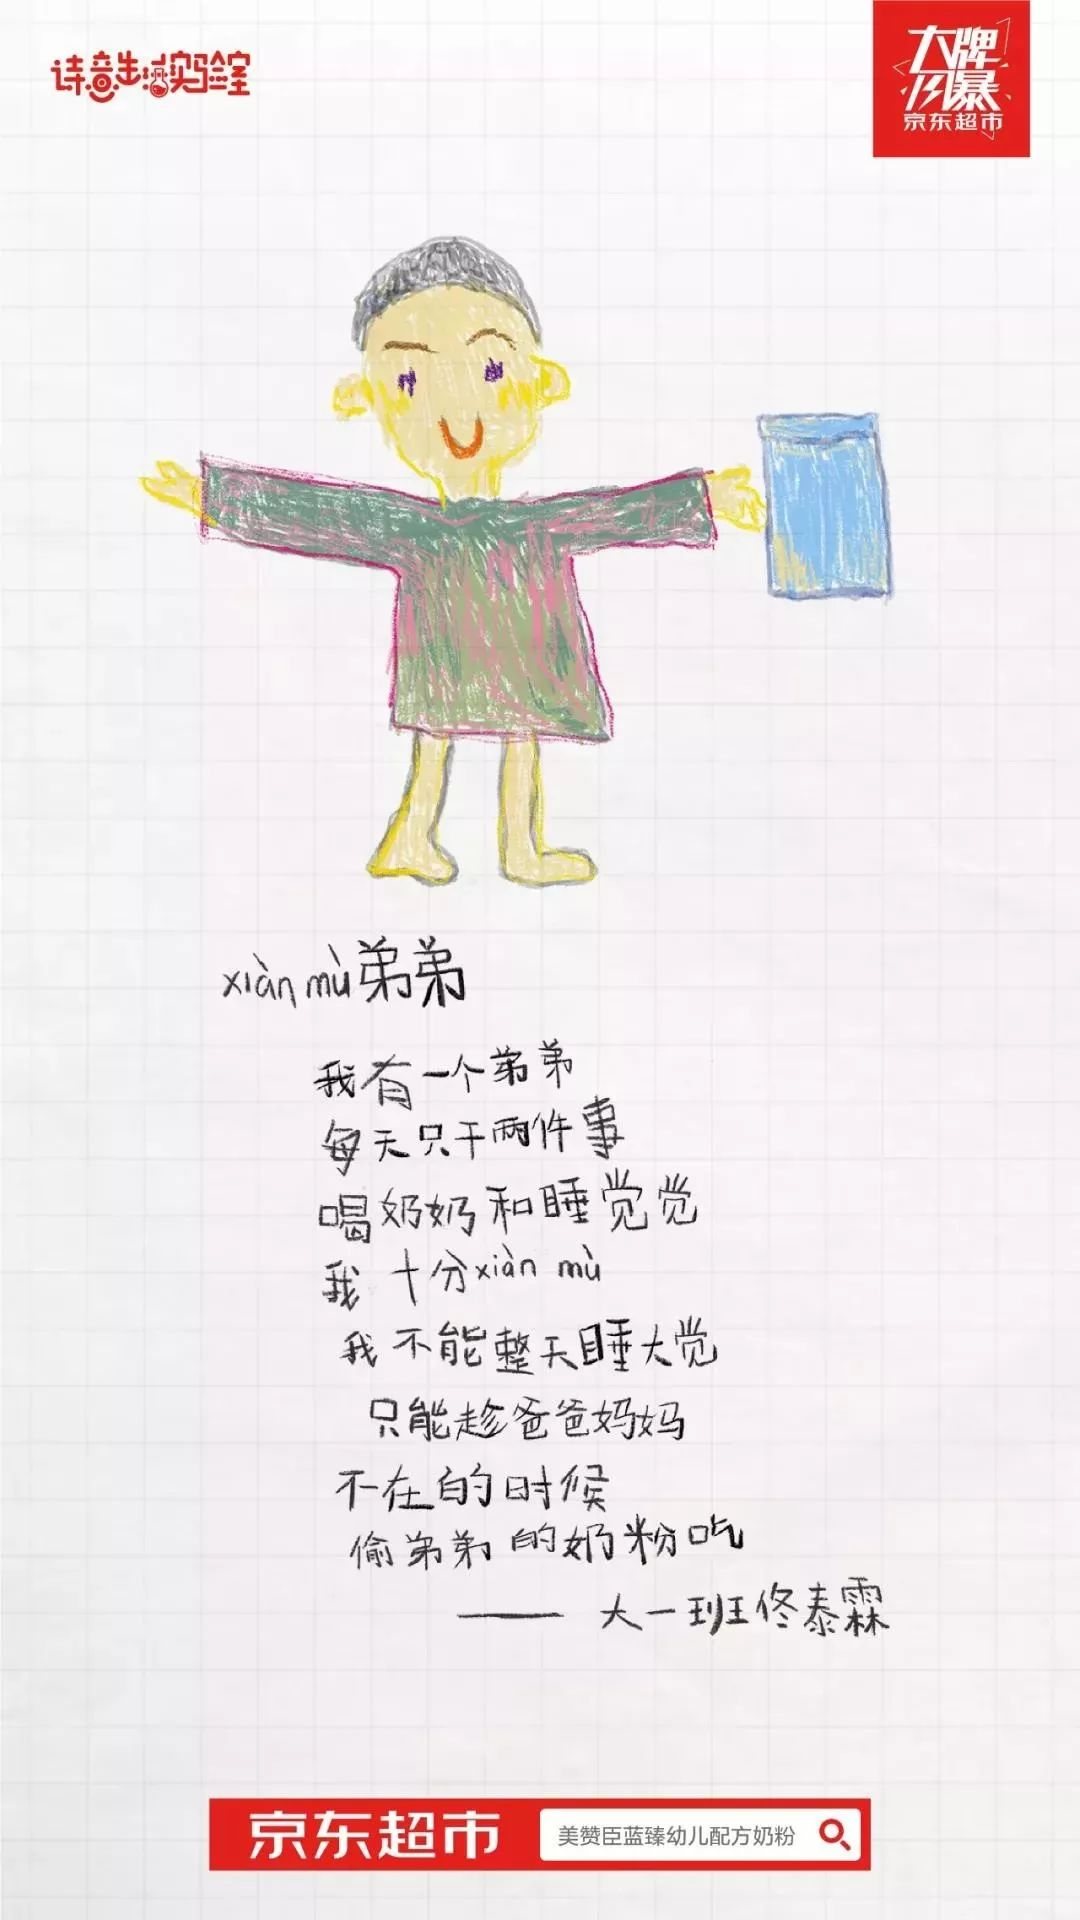 诗意生活实验室
大牌风暴
京东超市
xiàn mù弟弟
我有一个弟弟
每天只干两件事
喝奶奶和睡觉觉
我十分xiàn mù
我不能整天睡大觉
只能趁爸爸妈妈
不在的时候
偷弟弟的奶粉吃
—— 大一班佟泰霖
京东超市
美赞臣蓝臻幼儿配方奶粉